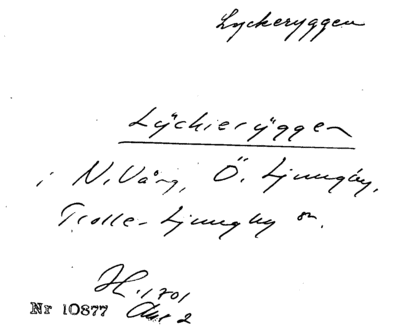 Lyckeryggen
Lÿckierÿggen
i N. Vång, Ö. Ljungby,
Trolle-Ljungby sn.
H. 1701
Nr 10877 Akt 2